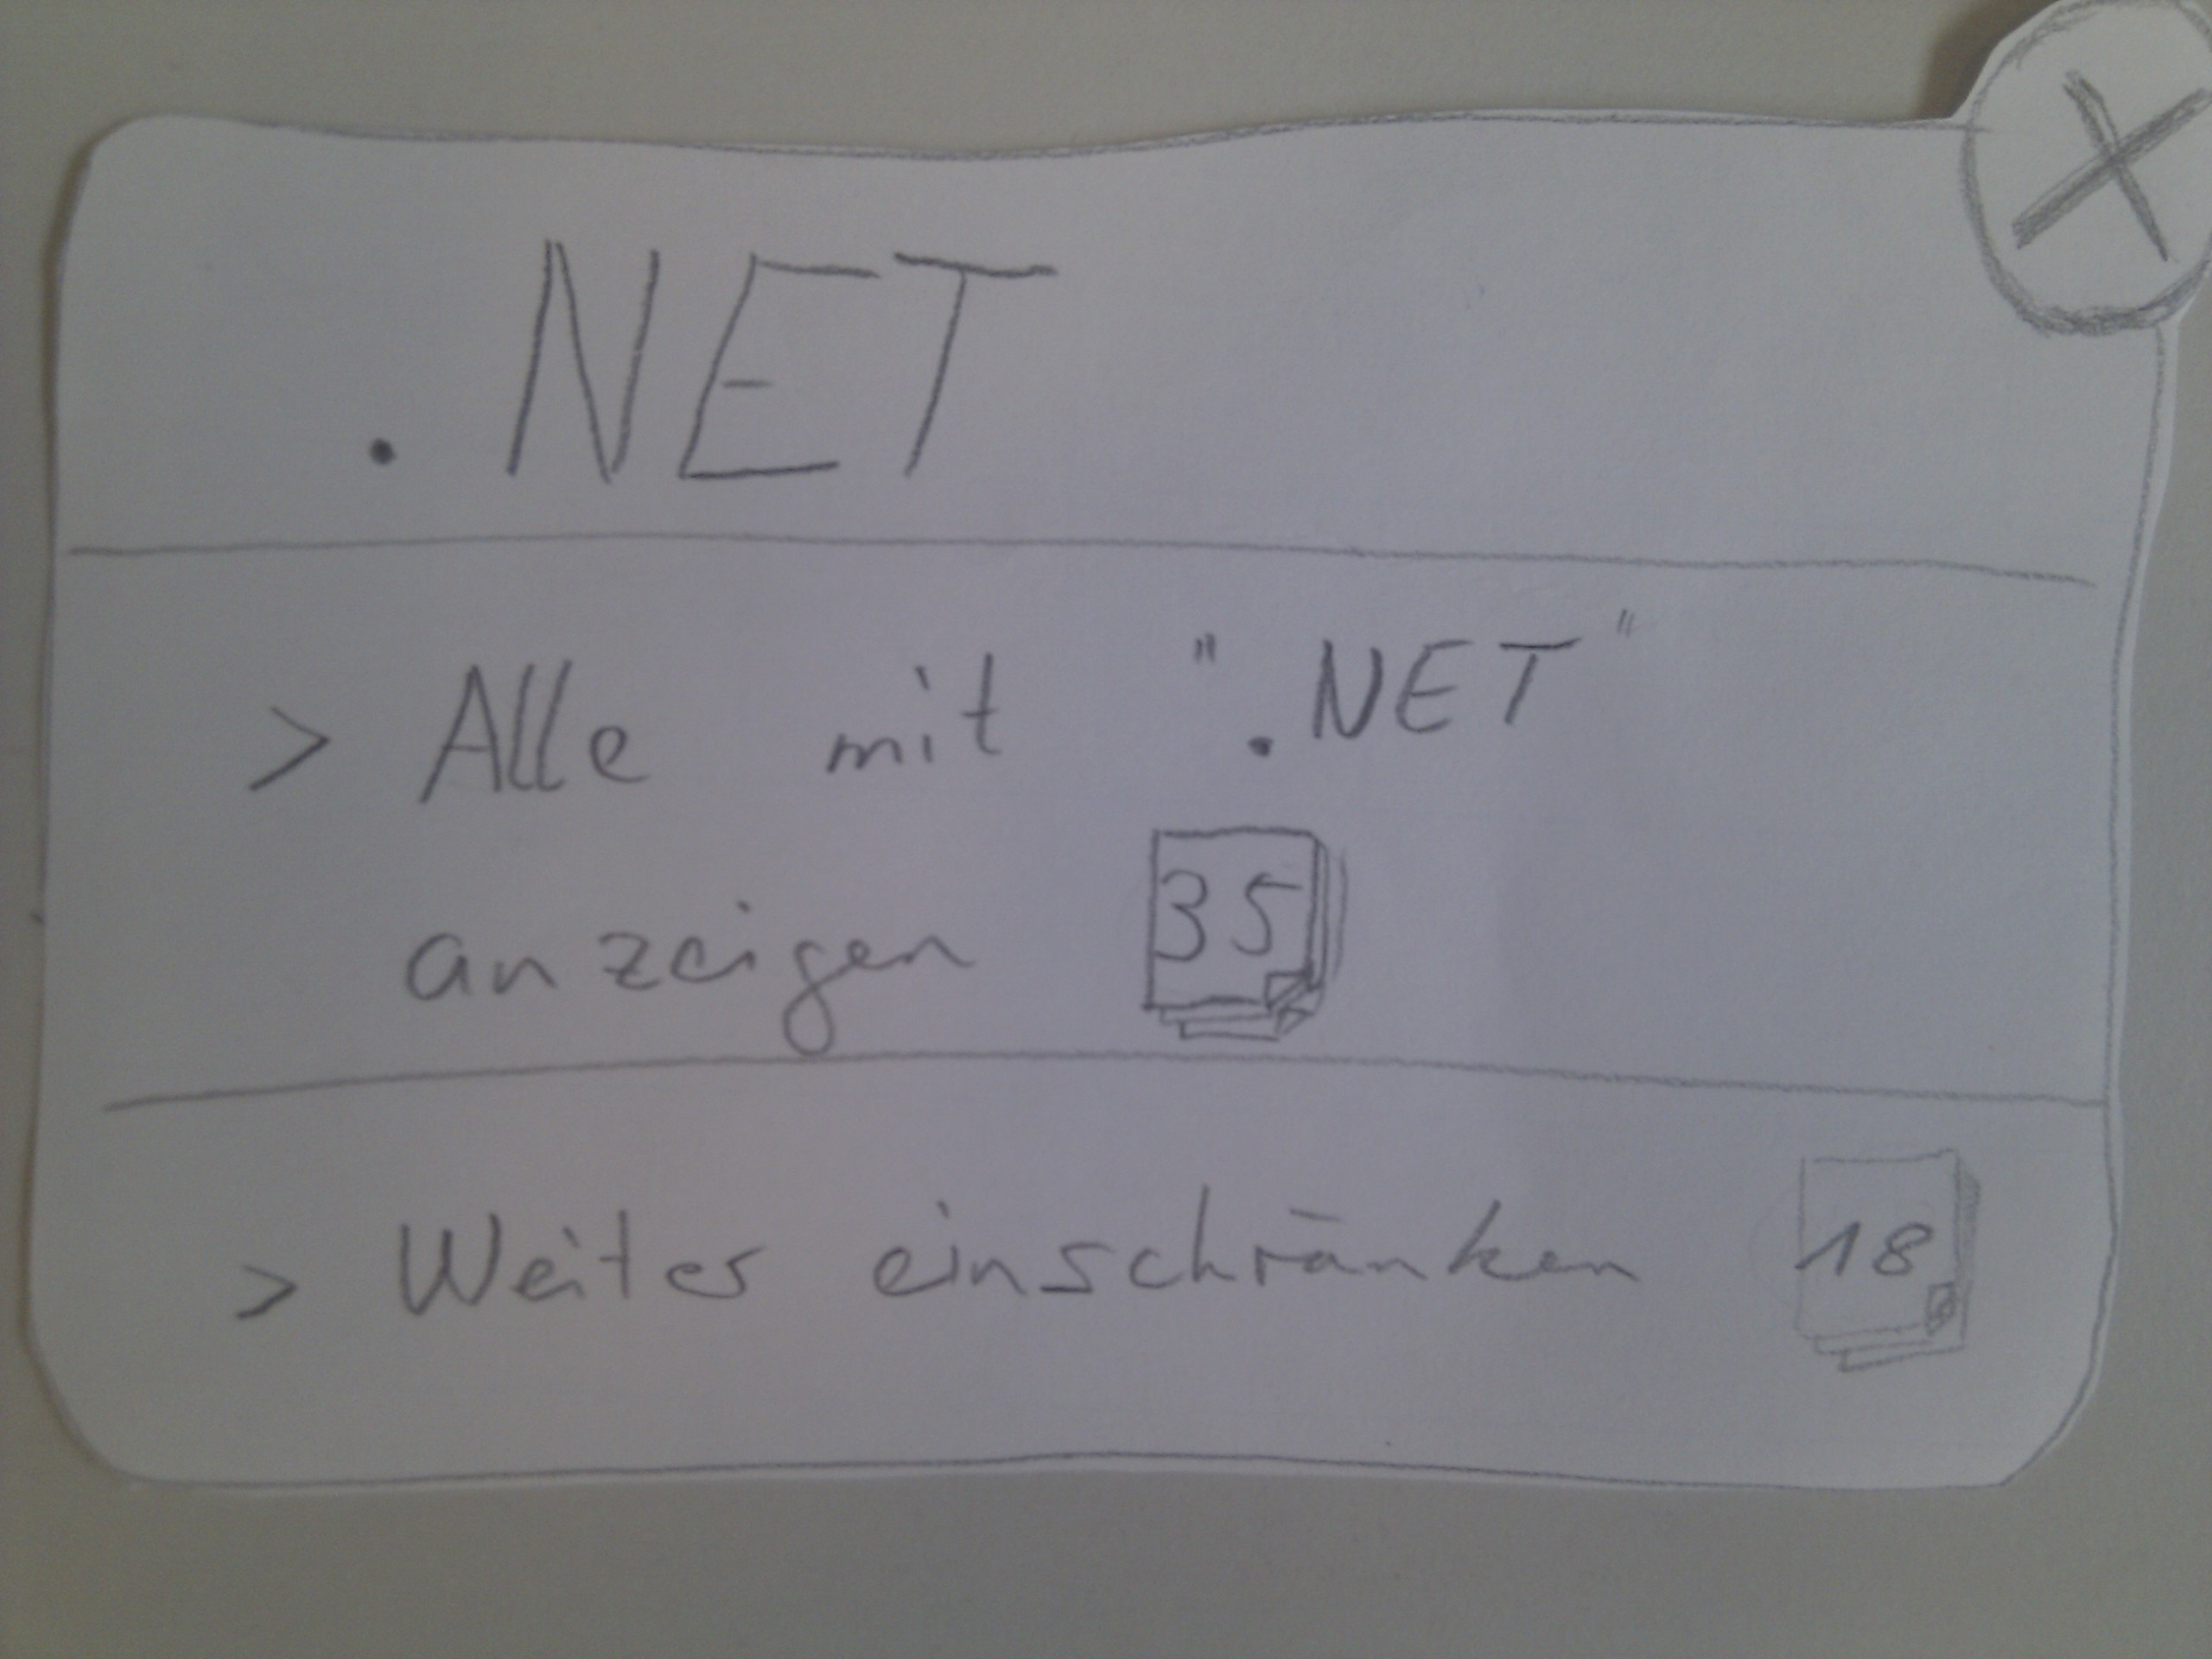 .NET
> Alle mit ".NET"
anzeigen 35
> Weiter einschränken 18